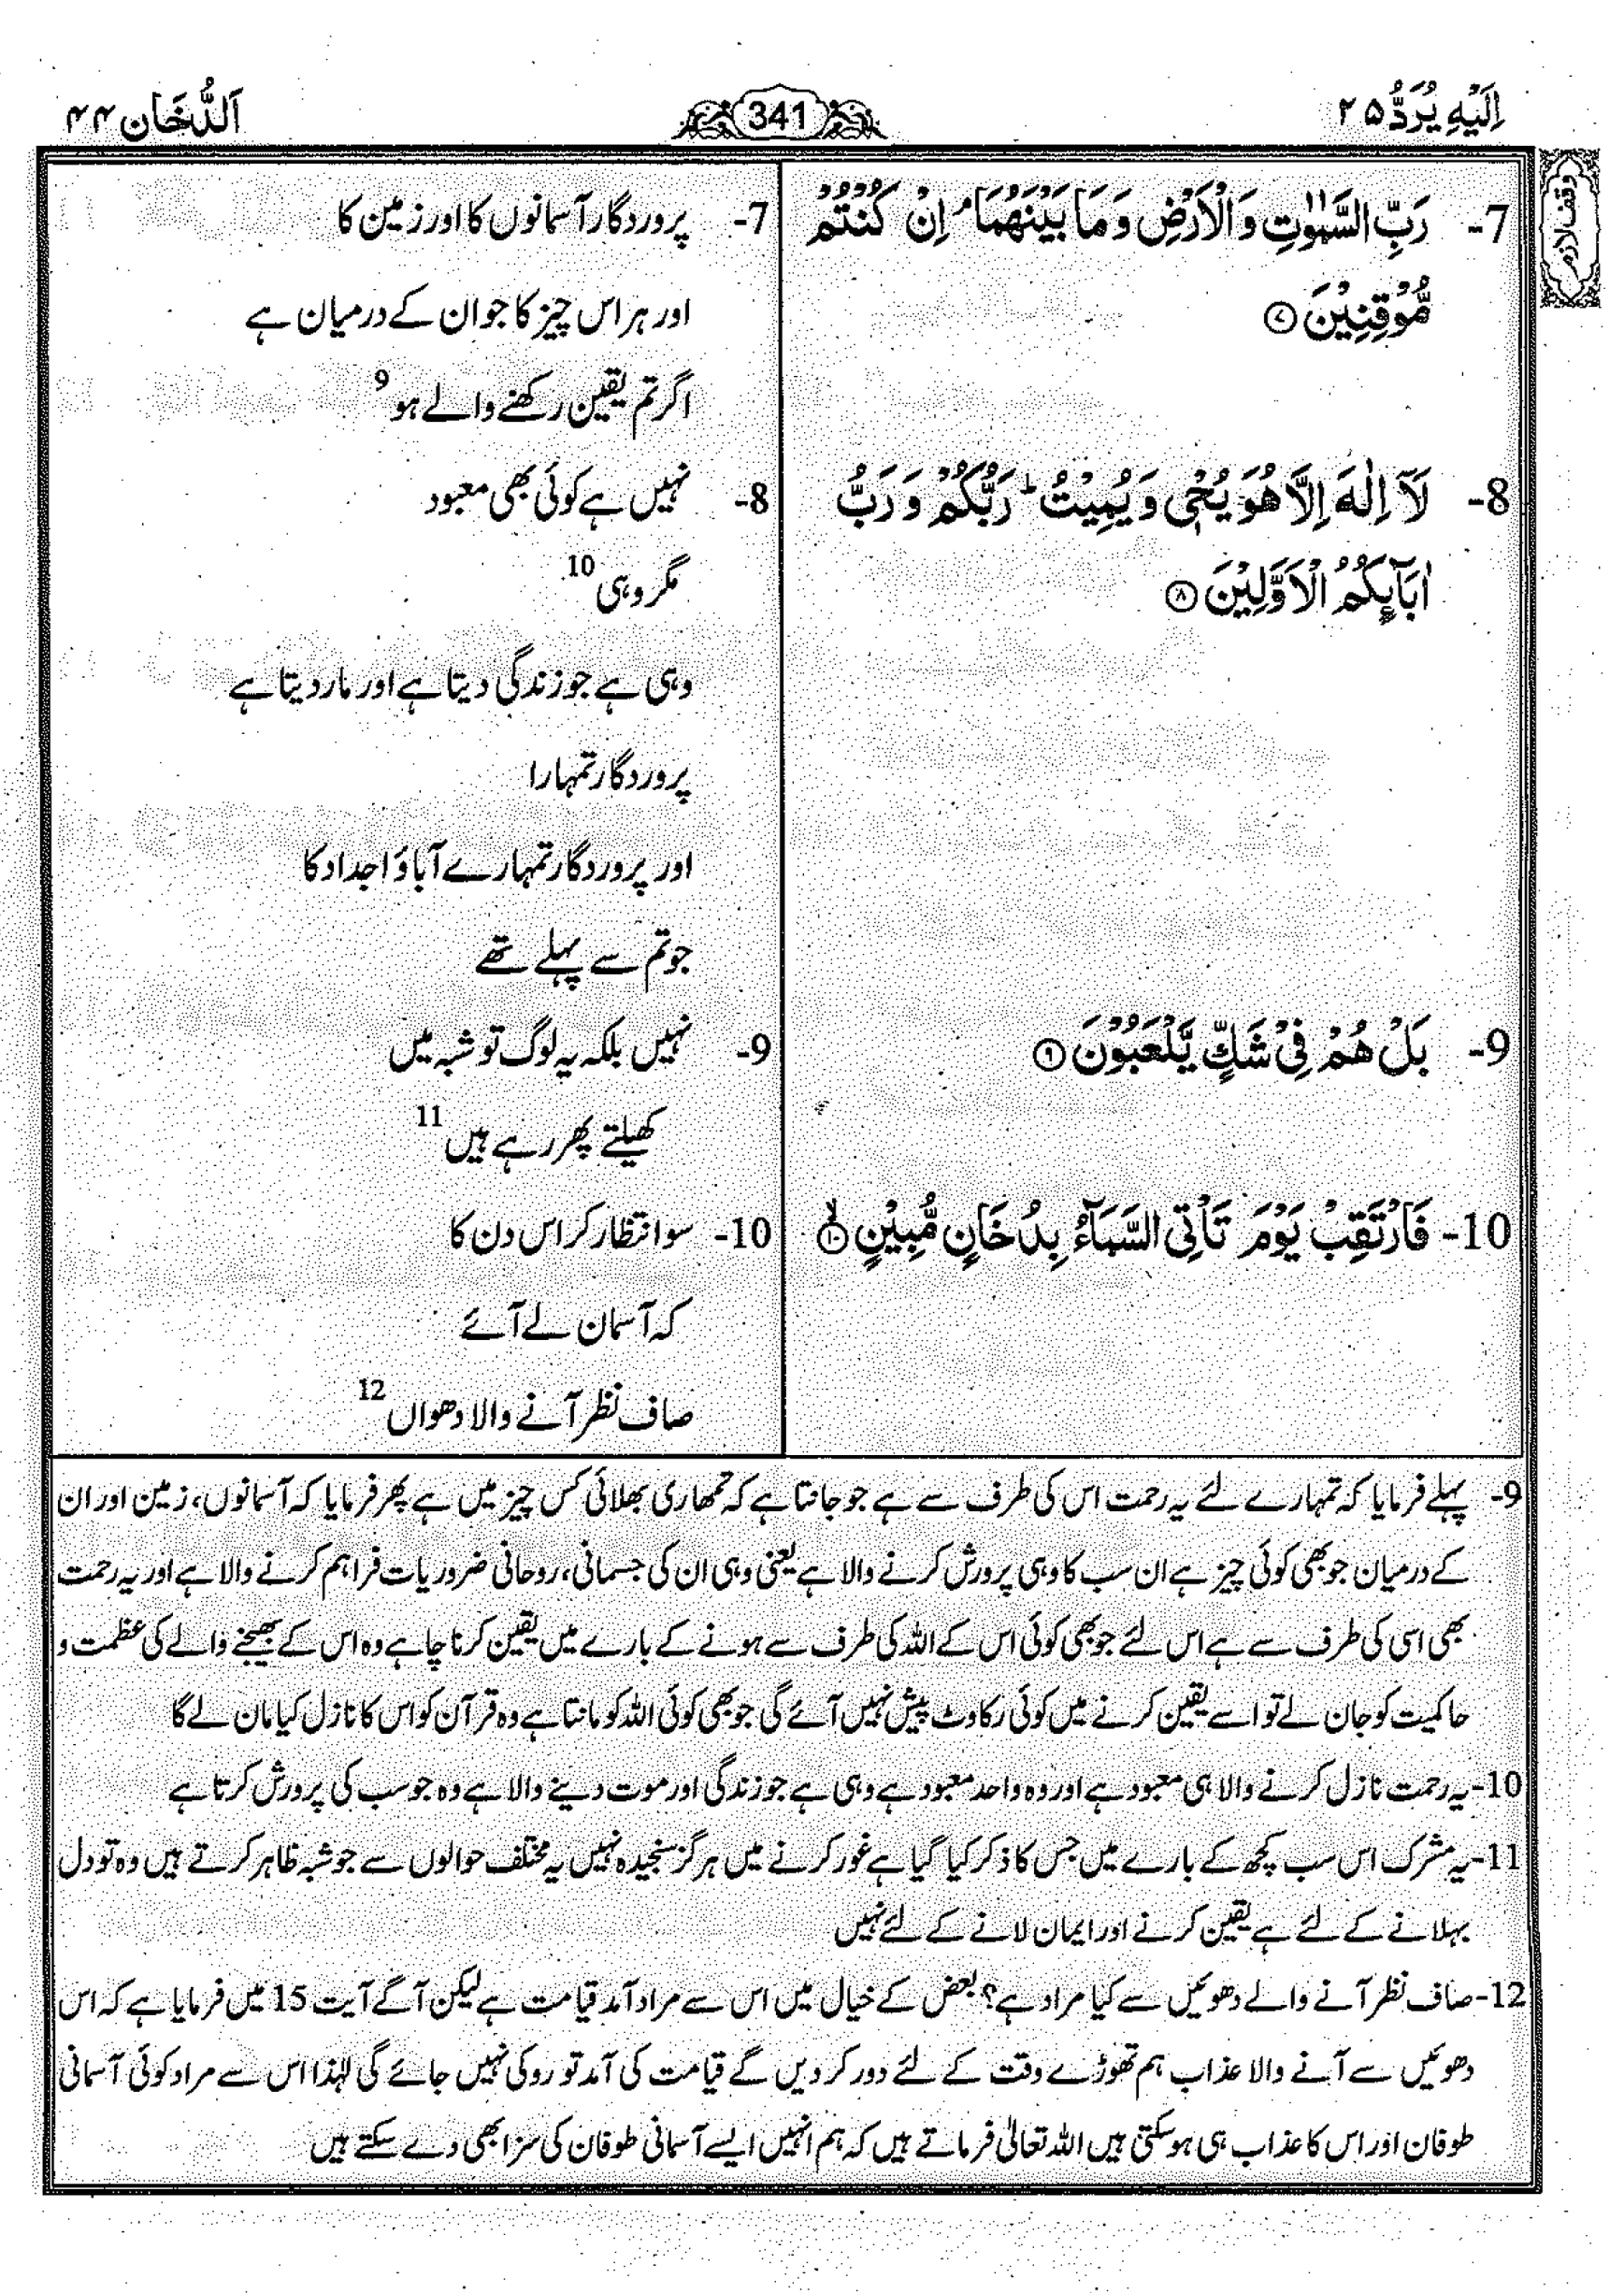 اِلَیْهِ یُرَدُّ ۲۵
341
اَلدُّخَان ۴۴
وقف لازم
7- رَبِّ السَّمٰوٰتِ وَ الْاَرْضِ وَ مَا بَیْنَهُمَا ۘ اِنْ كُنْتُمْ
مُّوْقِنِیْنَ ۷
8- لَاۤ اِلٰهَ اِلَّا هُوَ یُحْیٖ وَ یُمِیْتُ ؕ رَبُّكُمْ وَ رَبُّ
اٰبَآىِٕكُمُ الْاَوَّلِیْنَ ۸
9- بَلْ هُمْ فِیْ شَكٍّ یَّلْعَبُوْنَ ۹
10- فَارْتَقِبْ یَوْمَ تَاْتِی السَّمَآءُ بِدُخَانٍ مُّبِیْنٍ ۱۰ ۙ
7- پروردگار آسمانوں کا اور زمین کا
اور ہر اس چیز کا جو ان کے درمیان ہے
اگر تم یقین رکھنے والے ہو 9
8- نہیں ہے کوئی بھی معبود
مگر وہی 10
وہی ہے جو زندگی دیتا ہے اور مار دیتا ہے
پروردگار تمہارا
اور پروردگار تمہارے آباؤ اجداد کا
جو تم سے پہلے تھے
9- نہیں بلکہ یہ لوگ تو شبہ میں
کھیلتے پھر رہے ہیں 11
10- سو انتظار کر اس دن کا
کہ آسمان لے آئے
صاف نظر آنے والا دھواں 12
9- پہلے فرمایا کہ تمہارے لئے یہ رحمت اس کی طرف سے ہے جو جانتا ہے کہ تمھاری بھلائی کس چیز میں ہے پھر فرمایا کہ آسمانوں، زمین اور ان
کے درمیان جو بھی کوئی چیز ہے ان سب کا وہی پرورش کرنے والا ہے یعنی وہی ان کی جسمانی، روحانی ضروریات فراہم کرنے والا ہے اور یہ رحمت
بھی اسی کی طرف سے ہے اس لئے جو بھی کوئی اس کے اللہ کی طرف سے ہونے کے بارے میں یقین کرنا چاہے وہ اس کے بھیجنے والے کی عظمت و
حاکمیت کو جان لے تو اسے یقین کرنے میں کوئی رکاوٹ پیش نہیں آئے گی جو بھی کوئی اللہ کو مانتا ہے وہ قرآن کو اس کا نازل کیا مان لے گا
10- یہ رحمت نازل کرنے والا ہی معبود ہے اور وہ واحد معبود ہے وہی ہے جو زندگی اور موت دینے والا ہے وہ جو سب کی پرورش کرتا ہے
11- یہ مشرک اس سب کچھ کے بارے میں جس کا ذکر کیا گیا ہے غور کرنے میں ہرگز سنجیدہ نہیں یہ مختلف حوالوں سے جو شبہ ظاہر کرتے ہیں وہ تو دل
بہلانے کے لئے ہے یقین کرنے اور ایمان لانے کے لئے نہیں
12- صاف نظر آنے والے دھوئیں سے کیا مراد ہے؟ بعض کے خیال میں اس سے مراد آمد قیامت ہے لیکن آگے آیت 15 میں فرمایا ہے کہ اس
دھوئیں سے آنے والا عذاب ہم تھوڑے وقت کے لئے دور کر دیں گے قیامت کی آمد تو روکی نہیں جائے گی لہٰذا اس سے مراد کوئی آسمانی
طوفان اور اس کا عذاب ہی ہو سکتی ہیں اللہ تعالیٰ فرماتے ہیں کہ ہم انہیں ایسے آسمانی طوفان کی سزا بھی دے سکتے ہیں